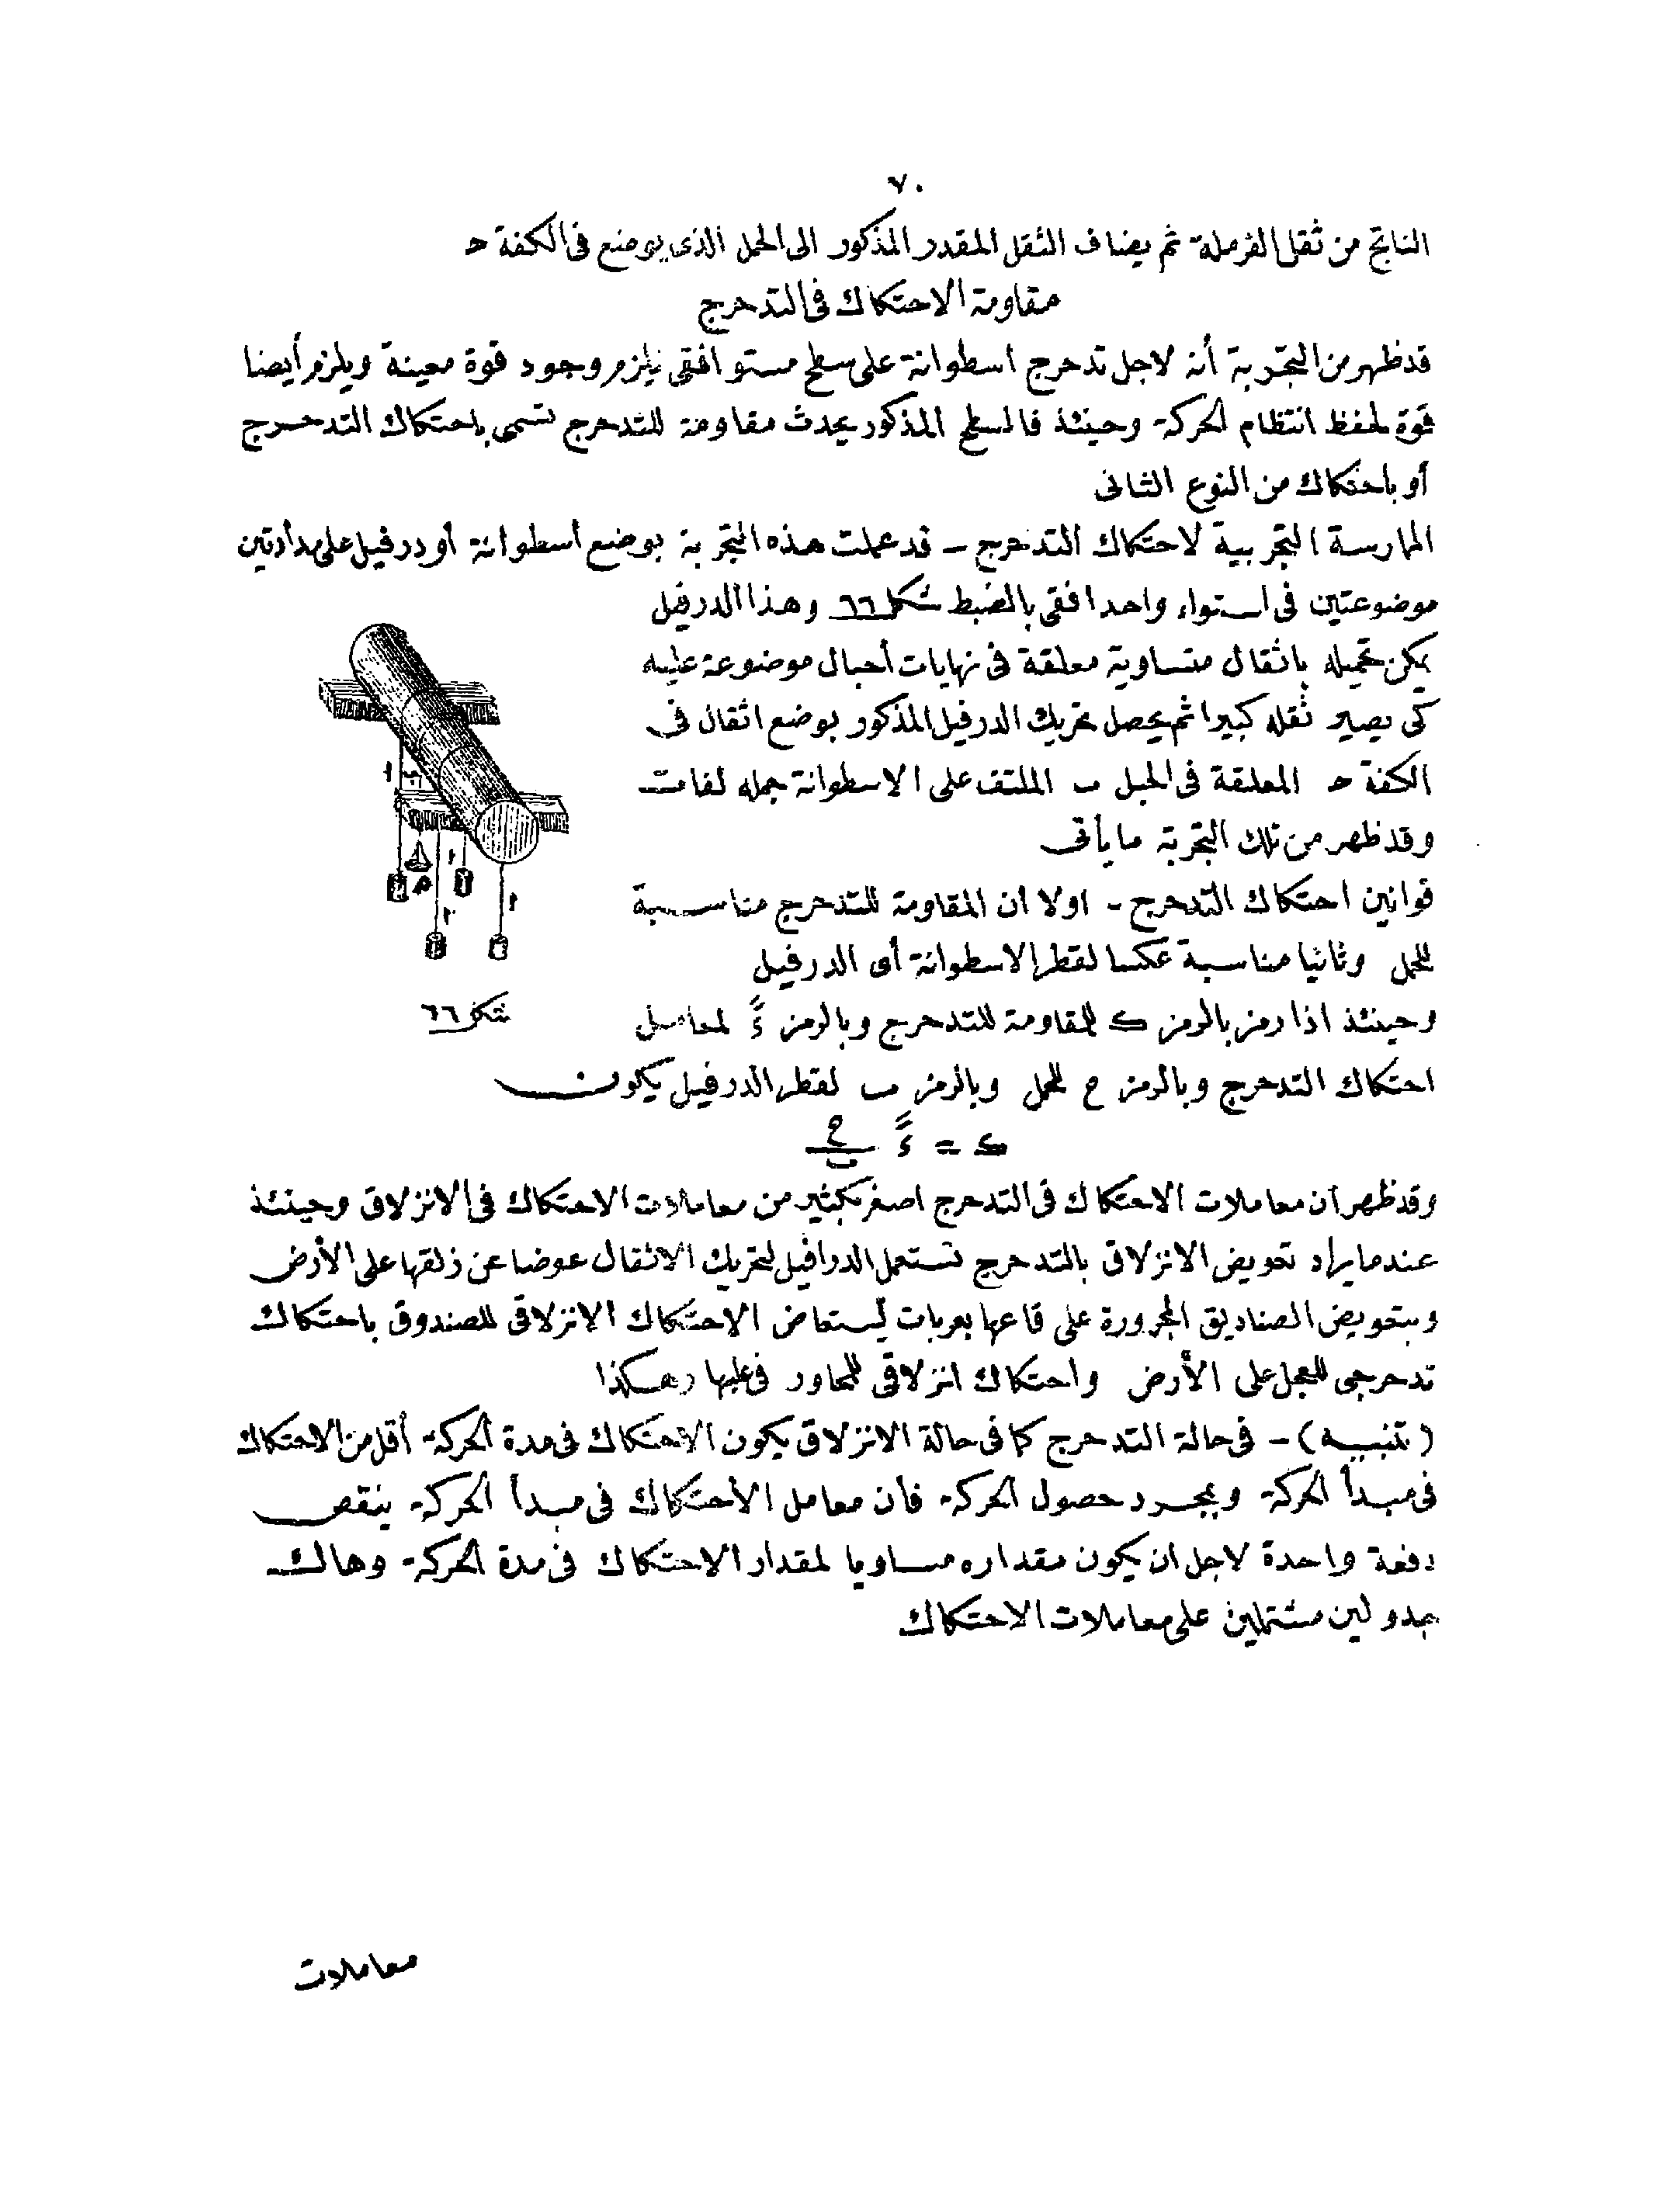 ٧٠
الناتج من ثقل الفرملة ثم يضاف الثقل المقدر المذكور الى الحمل الذى يوضع فى الكفة حـ
مقاومة الاحتكاك فى التدحرج
قد ظهر من التجربة أنه لاجل تدحرج اسطوانة على سطح مستو افقى يلزم وجود قوة معينة ويلزم أيضا
قوة لحفظ انتظام الحركة وحينئذ فالسطح المذكور يحدث مقاومة للتدحرج تسمى باحتكاك التدحرج
أو باحتكاك من النوع الثانى
الممارسة التجريبية لاحتكاك التدحرج - قد عملت هذه التجربة بوضع أسطوانة أو درفيل على مدادتين
موضوعتين فى استواء واحد افقى بالضبط شكل ٦٦ وهذا الدرفيل
يمكن تحميله باثقال متساوية معلقة فى نهايات أحبال موضوعة عليه
كى يصير ثقله كبيرا ثم يحصل تحريك الدرفيل المذكور بوضع اثقال فى
الكفة حـ المعلقة فى الحبل ب الملتف على الاسطوانة جمله لفات
وقد ظهر من تلك التجربة ما يأتى
قوانين احتكاك التدحرج - اولا ان المقاومة للتدحرج مناسبة
للحمل وثانيا مناسبة عكسا لقطر الاسطوانة أى الدرفيل
شكل ٦٦
وحينئذ اذا رمز بالرمز ك للمقاومة للتدحرج وبالرمز ءً لمعامل
احتكاك التدحرج وبالرمز ح للحمل وبالرمز ب لقطر الدرفيل يكون
ك = ءً ح/ب
وقد ظهر أن معاملات الاحتكاك فى التدحرج اصغر بكثير من معاملات الاحتكاك فى الانزلاق وحينئذ
عندما يراد تعويض الانزلاق بالتدحرج تستعمل الدرافيل لتحريك الاثقال عوضا عن زلقها على الأرض
وبتعويض الصناديق المجرورة على قاعها بعربات يستعاض الاحتكاك الانزلاقى للصندوق باحتكاك
تدحرجى للعجل على الأرض واحتكاك انزلاقى للمحاور فى علبها وهكذا
(تنبيه) - فى حالة التدحرج كما فى حالة الانزلاق يكون الاحتكاك فى مدة الحركة أقل من الاحتكاك
فى مبدأ الحركة وبمجرد حصول الحركة فان معامل الاحتكاك فى مبدأ الحركة ينقص
دفعة واحدة لاجل ان يكون مقداره مساويا لمقدار الاحتكاك فى مدة الحركة وهاك
جدولين مشتملين على معاملات الاحتكاك
معاملات